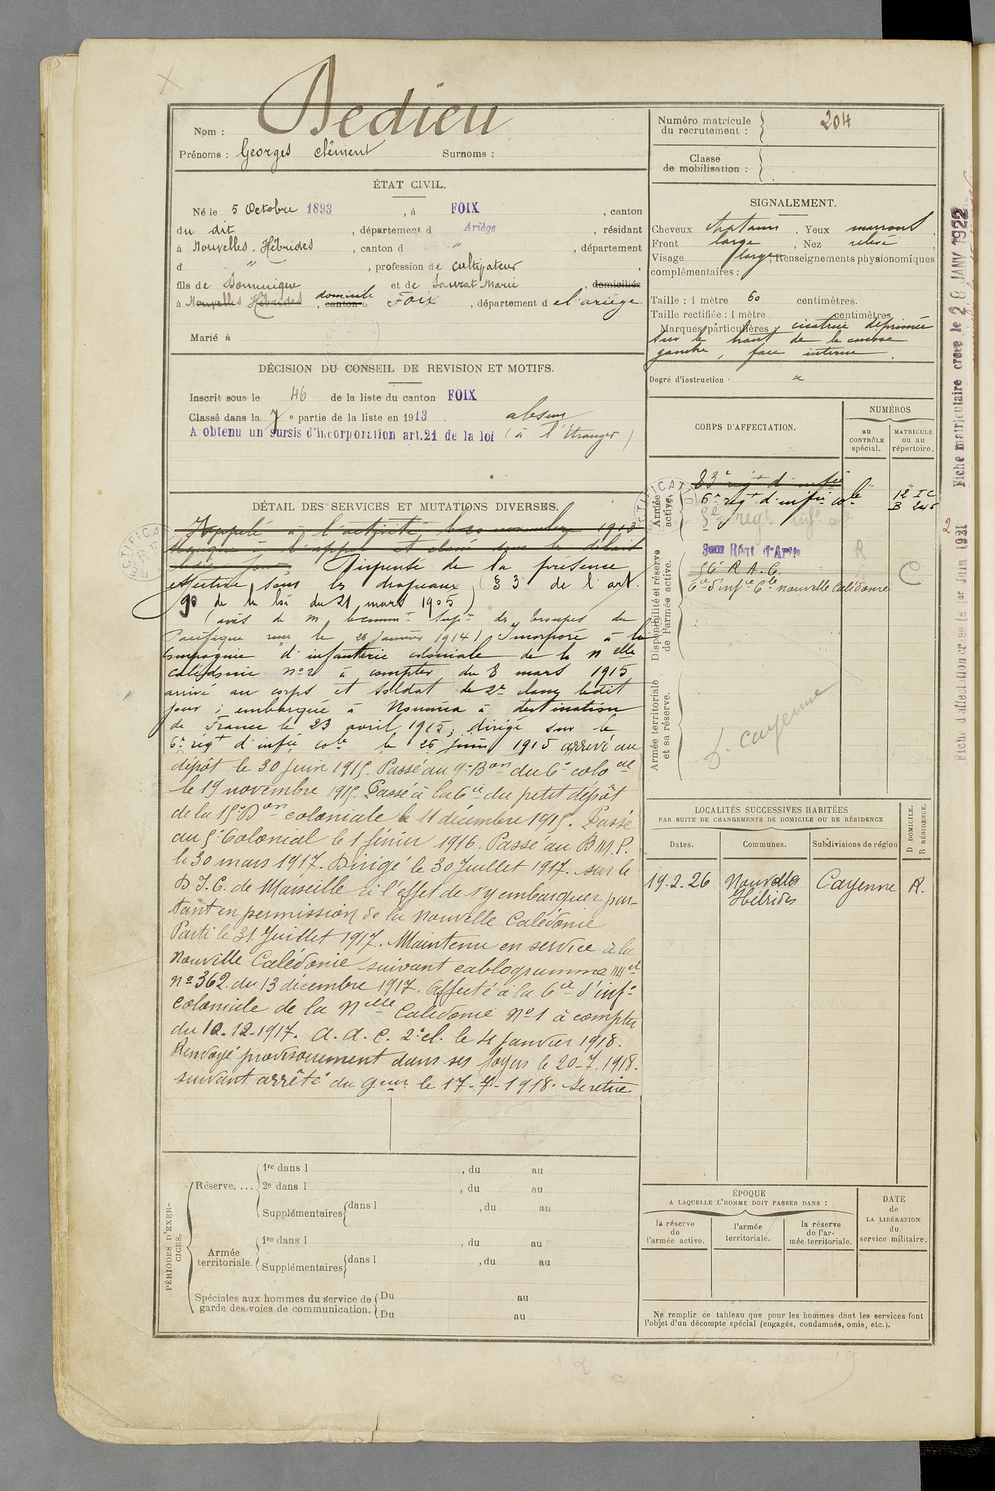 Nom : Dedieu
Prénoms : Georges Clément Surnoms :
ÉTAT CIVIL.
Né le 5 Octobre 1893, à FOIX, canton
du dit, département d Ariège, résidant
à Nouvelles-Hébrides, canton d ", département
d ", profession de cultivateur
fils de Dominique et de Laurat Marie domiciliés
à Nouvelles Hébrides domicile canton d Foix, département de l'ariège
Marié à
DÉCISION DU CONSEIL DE REVISION ET MOTIFS.
Inscrit sous le n° 46 de la liste du canton FOIX
Classé dans la 7e partie de la liste en 1913 absent
A obtenu un sursis d'incorporation art. 21 de la loi (à l'Etranger)
DÉTAIL DES SERVICES ET MUTATIONS DIVERSES.
Appelé à l'activité le 20 novembre 1913
Manque à l'appel et classé dans
Dispensé de la présence
effective sous les drapeaux (§ 3 de l'art.
90 de la loi du 21 mars 1905)
(avis de M. le comm. Sup. des troupes du
Pacifique du 28 Janvier 1914) Incorporé à la
Compagnie d'infanterie coloniale de la Nelle
Calédonie n°2 à compter du 8 mars 1915
arrivé au corps et soldat de 2e classe ledit
jour ; embarqué à Nouméa à destination
de France le 23 avril 1915, dirigé sur le
6e régt d'infie cole le 26 Juin 1915 arrivé au
dépôt le 30 Juin 1915. Passé au 9e Bon du 6e colonal
le 19 novembre 1915. Passé à la 6e Cie du petit dépôt
de la 15e Don coloniale le 11 décembre 1915. Passé
au 5e Colonial le 1 février 1916. Passé au B.M.P.
le 30 mars 1917. Dirigé le 30 Juillet 1917. sur le
D.I.C. de Marseille à l'effet de s'y embarquer par-
tant en permission de la Nouvelle Calédonie
Parti le 31 Juillet 1917. Maintenu en service à la
Nouvelle Calédonie suivant cablogramme Mel
n° 362 du 13 décembre 1917. Affecté à la Cie d'infie
coloniale de la Nelle Calédonie N°1 à compter
du 10-12-1917. A.d.c. 2e cl. le 4 Janvier 1918.
Renvoyé provisoirement dans ses foyers le 20-7-1918.
suivant arrêté du gneur le 17-7-1918. Se retire
PÉRIODES D'EXERCICES.
Réserve.... 1re dans l , du au
2e dans l , du au
Supplémentaires dans l , du au
Armée territoriale. 1re dans l , du au
Supplémentaires dans l , du au
Spéciales aux hommes du service de garde des voies de communication. Du au
Du au
Numéro matricule du recrutement : 204
Classe de mobilisation :
SIGNALEMENT.
Cheveux chatains, Yeux marrons,
Front large, Nez relevé
Visage large, Renseignements physionomiques
complémentaires :
Taille : 1 mètre 60 centimètres.
Taille rectifiée : 1 mètre centimètres
Marques particulières : cicatrice déprimée
sur le haut de la cuisse
gauche, face interne
Degré d'instruction :
CORPS D'AFFECTATION.
NUMÉROS
AU CONTRÔLE spécial.
MATRICULE ou au répertoire.
Armée active.
83e régt d'infie
6e régt d'infie cole
5e régt infie col
12 I C
Disponibilité et réserve de l'armée active.
R.A.C.
Cie d'infie Cle nouvelle Calédonie
R
C
Armée territoriale et sa réserve.
D. Cayenne
LOCALITÉS SUCCESSIVES HABITÉES
PAR SUITE DE CHANGEMENTS DE DOMICILE OU DE RÉSIDENCE
Dates. Communes. Subdivisions de région D DOMICILE. R RÉSIDENCE.
19.2.26 Nouvelles Hébrides Cayenne R.
ÉPOQUE
A LAQUELLE L'HOMME DOIT PASSER DANS :
la réserve de l'armée active.
l'armée territoriale.
la réserve de l'armée territoriale.
DATE de LA LIBÉRATION du service militaire.
Ne remplir ce tableau que pour les hommes dont les services font
l'objet d'un décompte spécial (engagés, condamnés, omis, etc.).
Fiche d'affectation créée le 1er Juin 1921
Fiche matriculaire créée le 28 JANV 1922